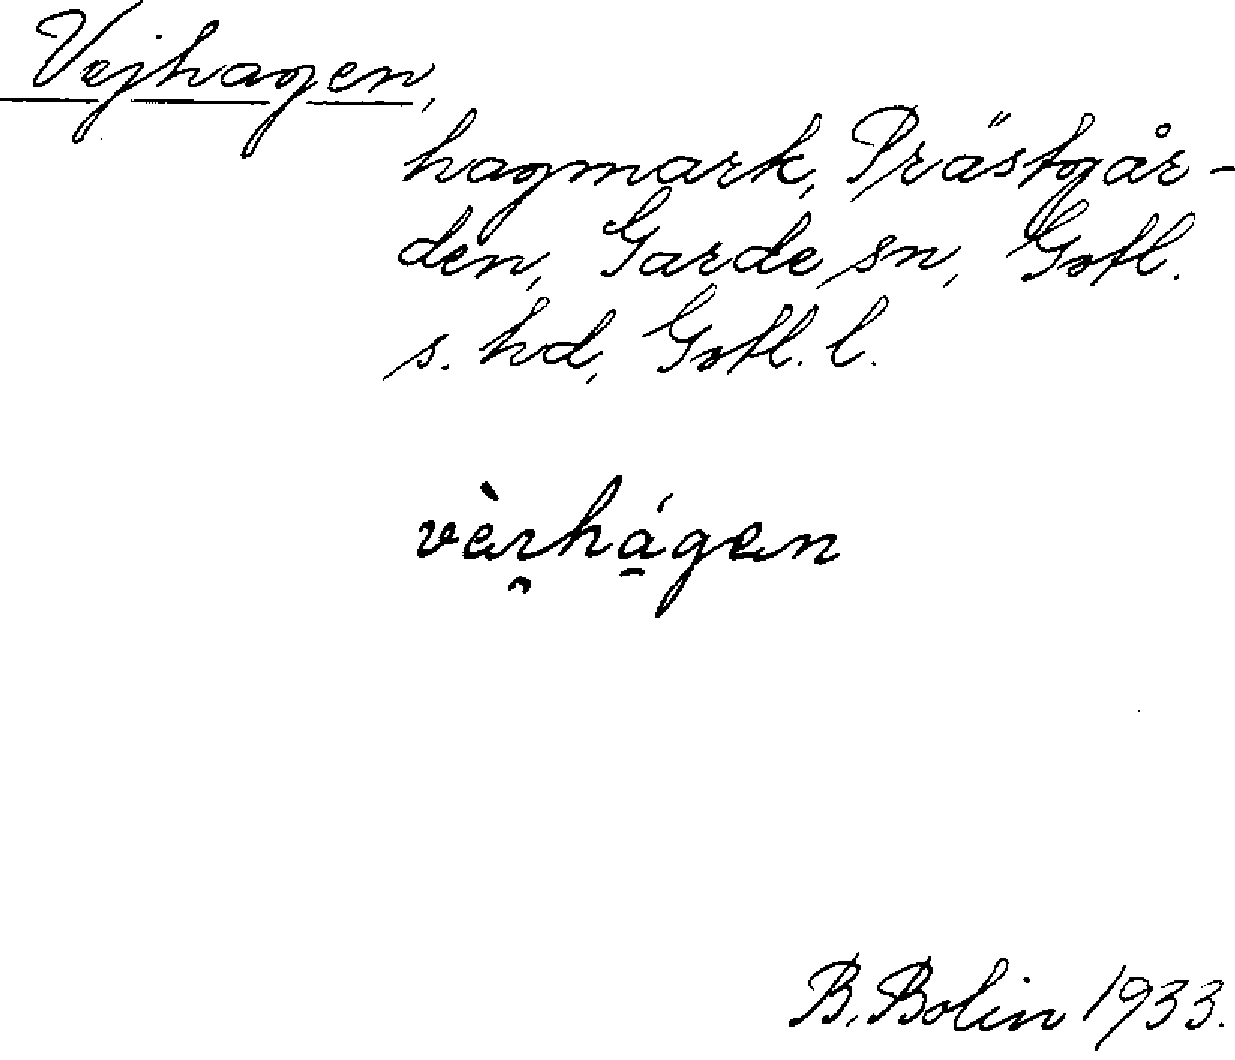 Vejhagen,
hagmark, Prästgår-
den, Garde sn, Gotl.
s. hd, Gotl. l.
B. Bolin 1933.